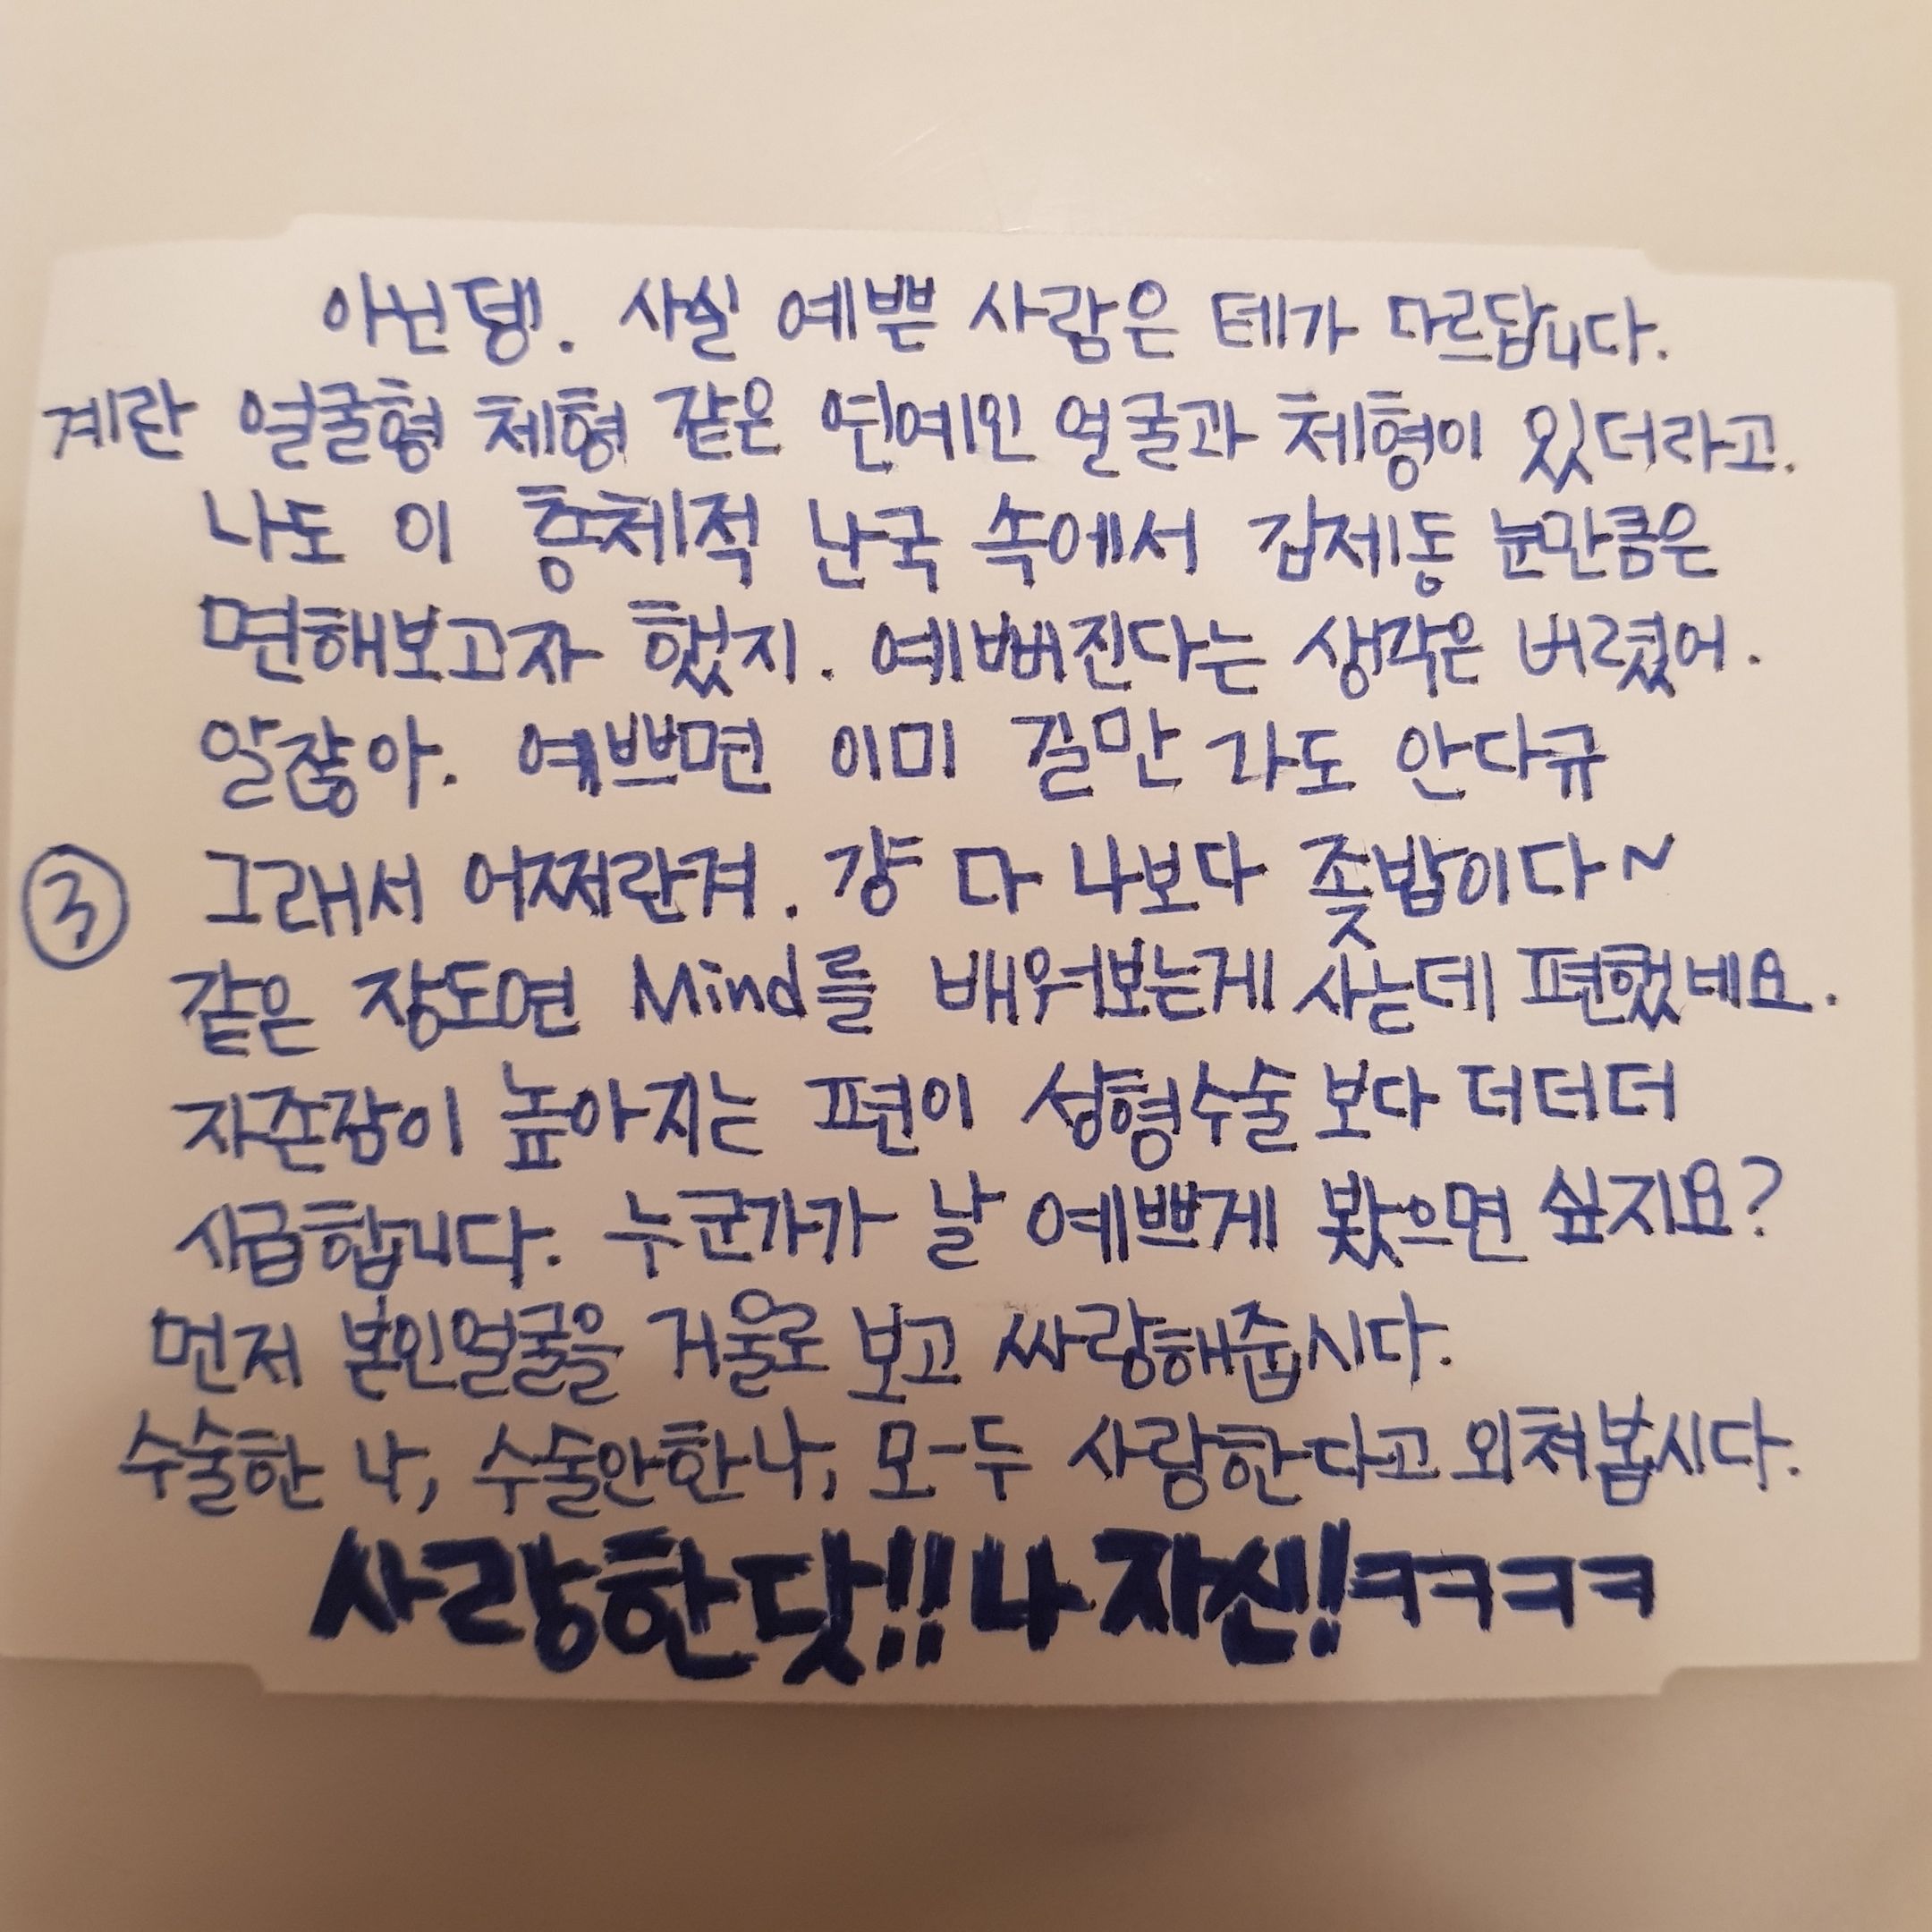 아닌뎅. 사실 예쁜 사람은 테가 다르답니다.
계란 얼굴형 체형 같은 연예인 얼굴과 체형이 있더라고.
나도 이 총체적 난국 속에서 김제동 눈만큼은
면해보고자 했지. 예뻐진다는 생각은 버렸어.
알잖아. 예쁘면 이미 길만 가도 안다규
③ 그래서 어쩌란겨. 걍 다 나보다 좆밥이다~
같은 장도연 Mind를 배워보는게 사는데 편했네요.
자존감이 높아지는 편이 성형수술보다 더더더
시급합니다. 누군가가 날 예쁘게 봤으면 싶지요?
먼저 본인얼굴을 거울로 보고 싸랑해줍시다.
수술한 나, 수술안한나, 모-두 사랑한다고 외쳐봅시다.
사랑한닷!! 나 자신!ㅋㅋㅋㅋ